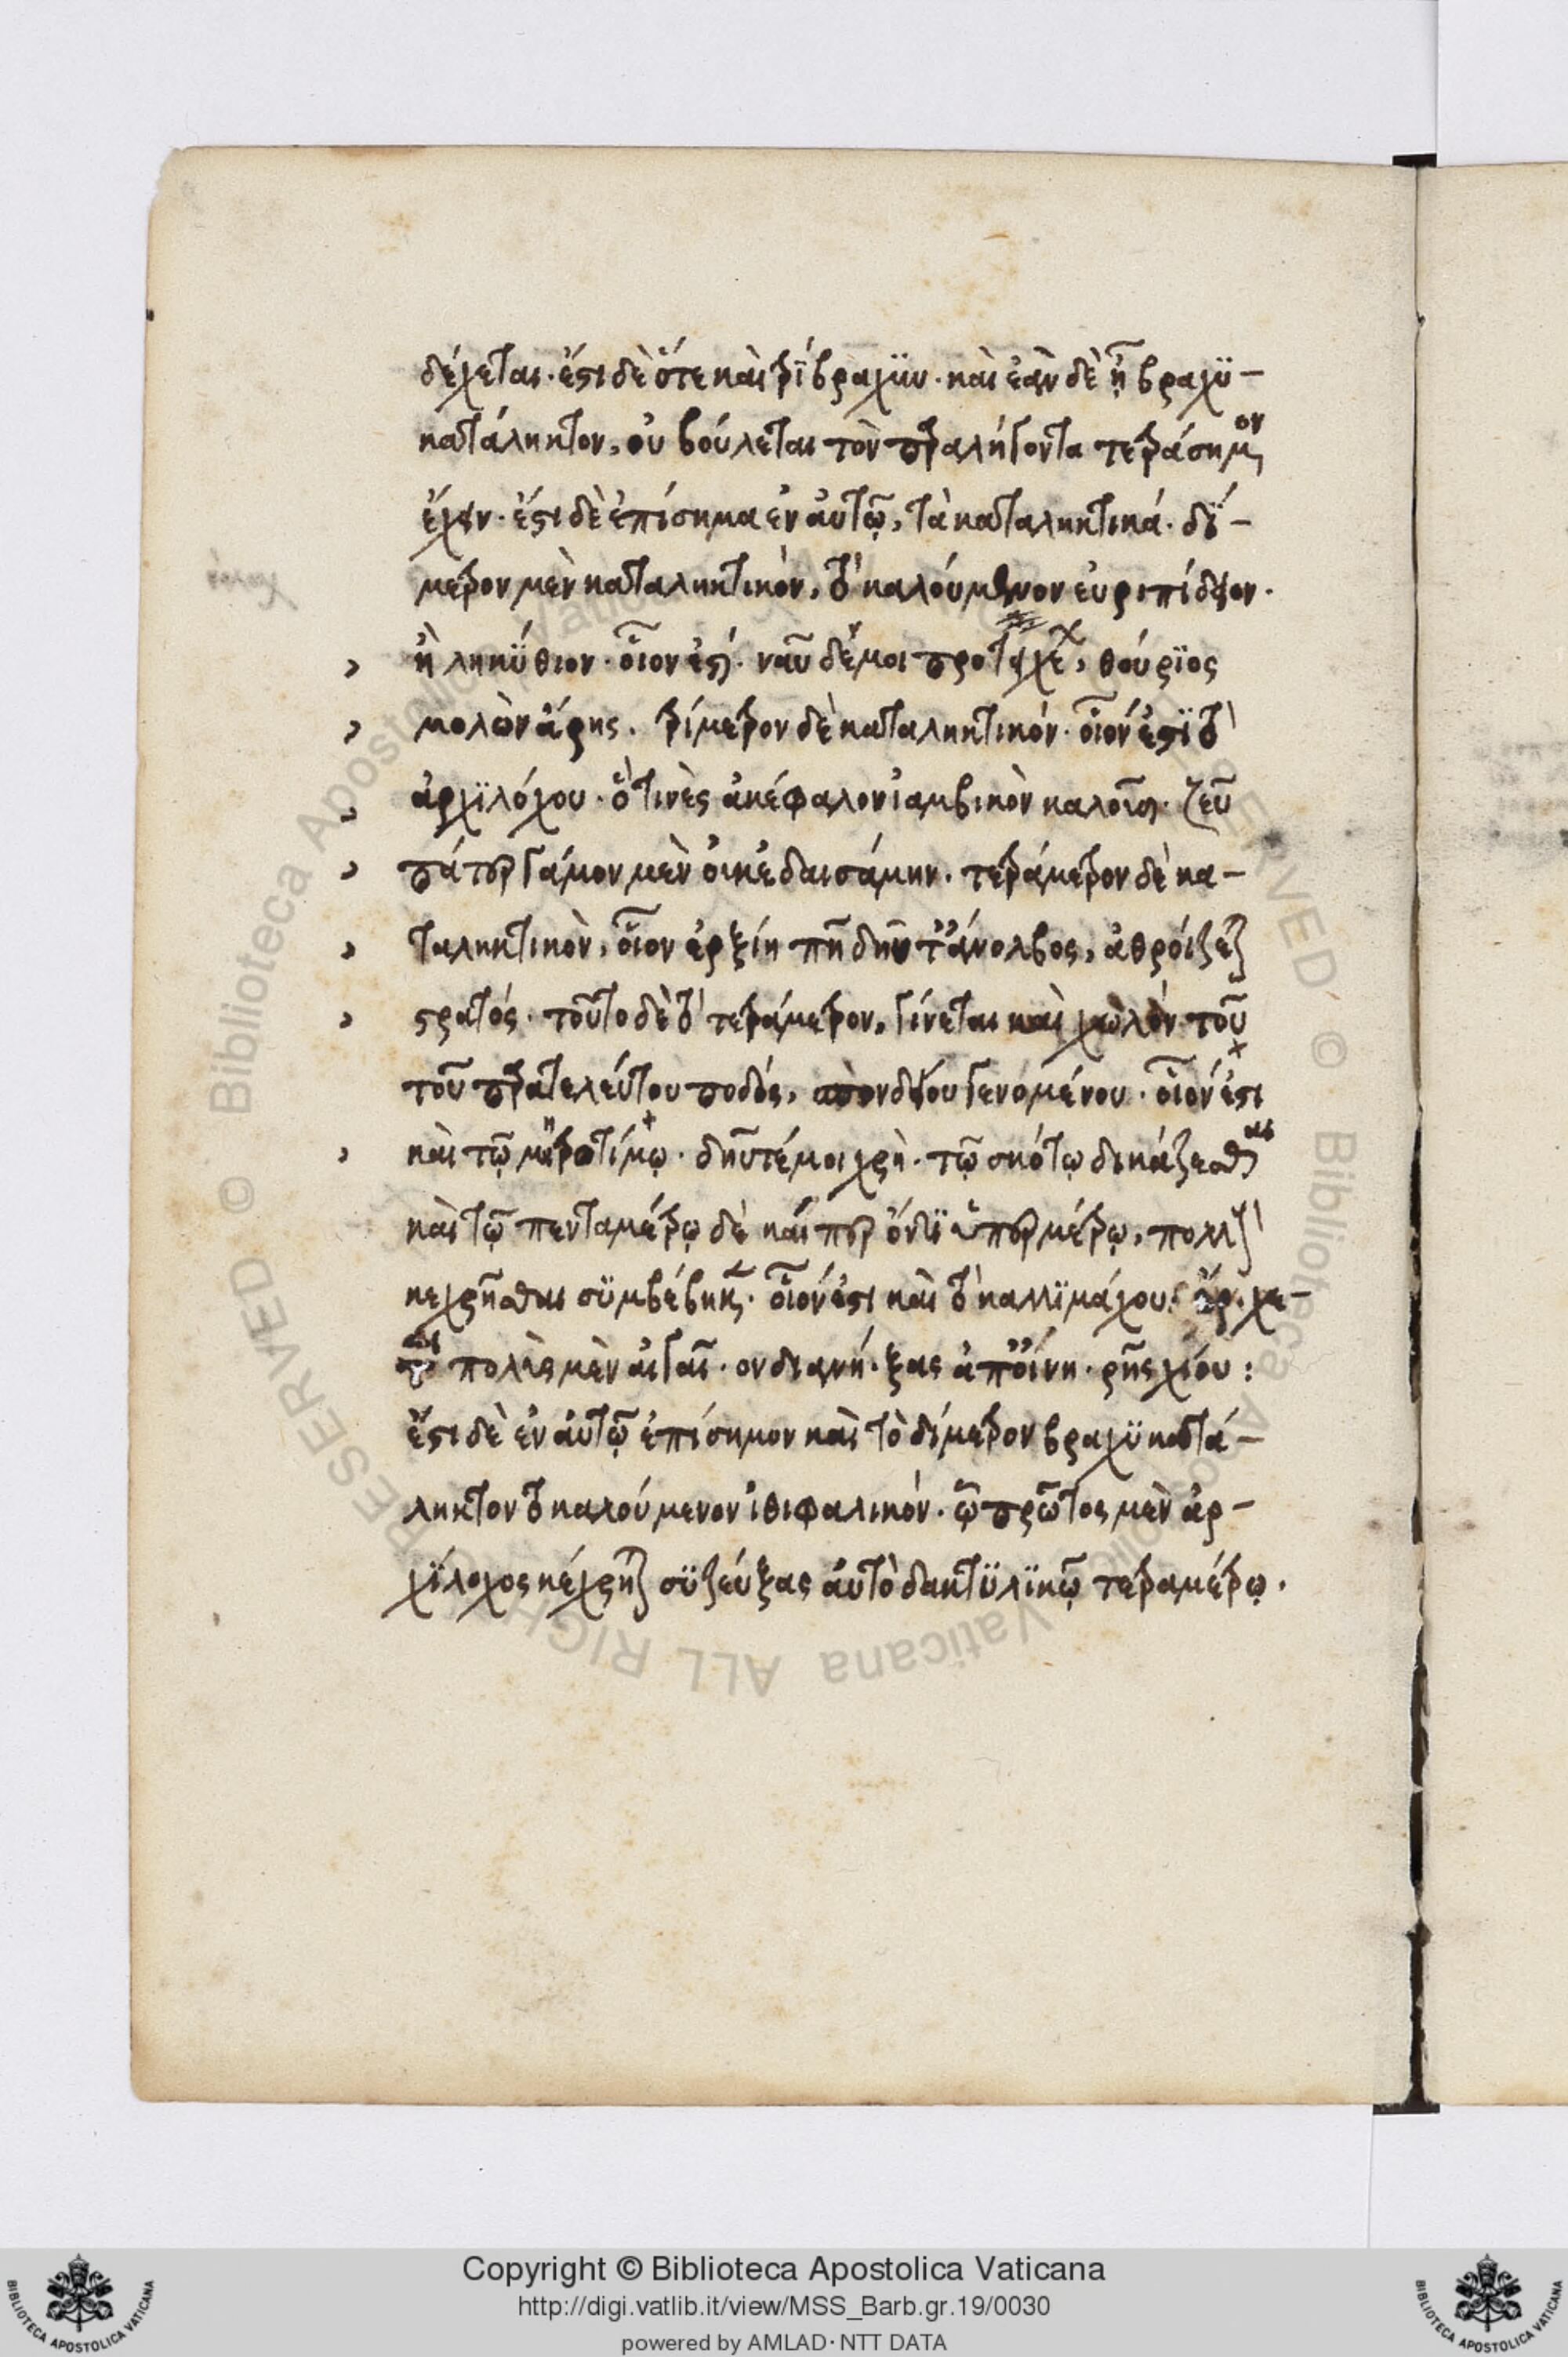 δέχεται· ἔστι δὲ ὅτε καὶ τρίβραχυν· καὶ ἐὰν δὲ ᾖ βραχυ-
κατάληκτον, οὐ βούλεται τὸν παραλήγοντα τετράσημον
ἔχειν· ἔστι δὲ ἐπίσημα ἐν αὐτῷ, τὰ καταληκτικά· δί-
μετρον μὲν καταληκτικὸν, τὸ καλούμενον εὐριπίδειον·
ἢ ληκύθιον· οἷον ἐστί· νῦν δέ μοι πρὸ τειχέ, θούριος
μολὼν ἄρης. τρίμετρον δὲ καταληκτικόν· οἷόν ἐστι τὸ
ἀρχιλόχου· ὅ τινὲς ἀκέφαλον ἰαμβικὸν καλοῦσι· ζεῦ
πάτερ γάμον μὲν οὐκ ἐδαισάμην. τετράμετρον δὲ κα-
ταληκτικὸν, οἷον ἐρξίη πῆ δηῦτ' ἄνολβος, ἀθροίζεται
στρατός· τοῦτο δὲ τὸ τετράμετρον, γίνεται καὶ χωλὸν τοῦ
τοῦ παρατελεύτου ποδός, σπονδείου γενομένου· οἷόν ἐστι
καὶ τῷ μητροτίμῳ· δηῦτέ μοι χρὴ· τῷ σκότῳ δικάζεσθαι
καὶ τῷ πενταμέτρῳ δὲ καίπερ ὄντι ὑπερμέτρῳ, πολλοὶ
κεχρῆσθαι συμβέβηκεν· οἷόν ἐστι καὶ τὸ καλλιμάχου· ἔρχε-
ται πολὺς μὲν αἰγαῖ· ον διανή· ξας ἀπ' οἰνη· ρῆς χίου:
ἔστι δὲ ἐν αὐτῷ ἐπίσημον καὶ τὸ δίμετρον βραχυκατά-
ληκτον τὸ καλούμενον ἰθιφαλικόν· ᾧ πρῶτος μὲν ἀρ-
χίλοχος κέχρηται συζεύξας αὐτὸ δακτυλικῷ τετραμέτρῳ.
Copyright © Biblioteca Apostolica Vaticana
http://digi.vatlib.it/view/MSS_Barb.gr.19/0030
powered by AMLAD · NTT DATA